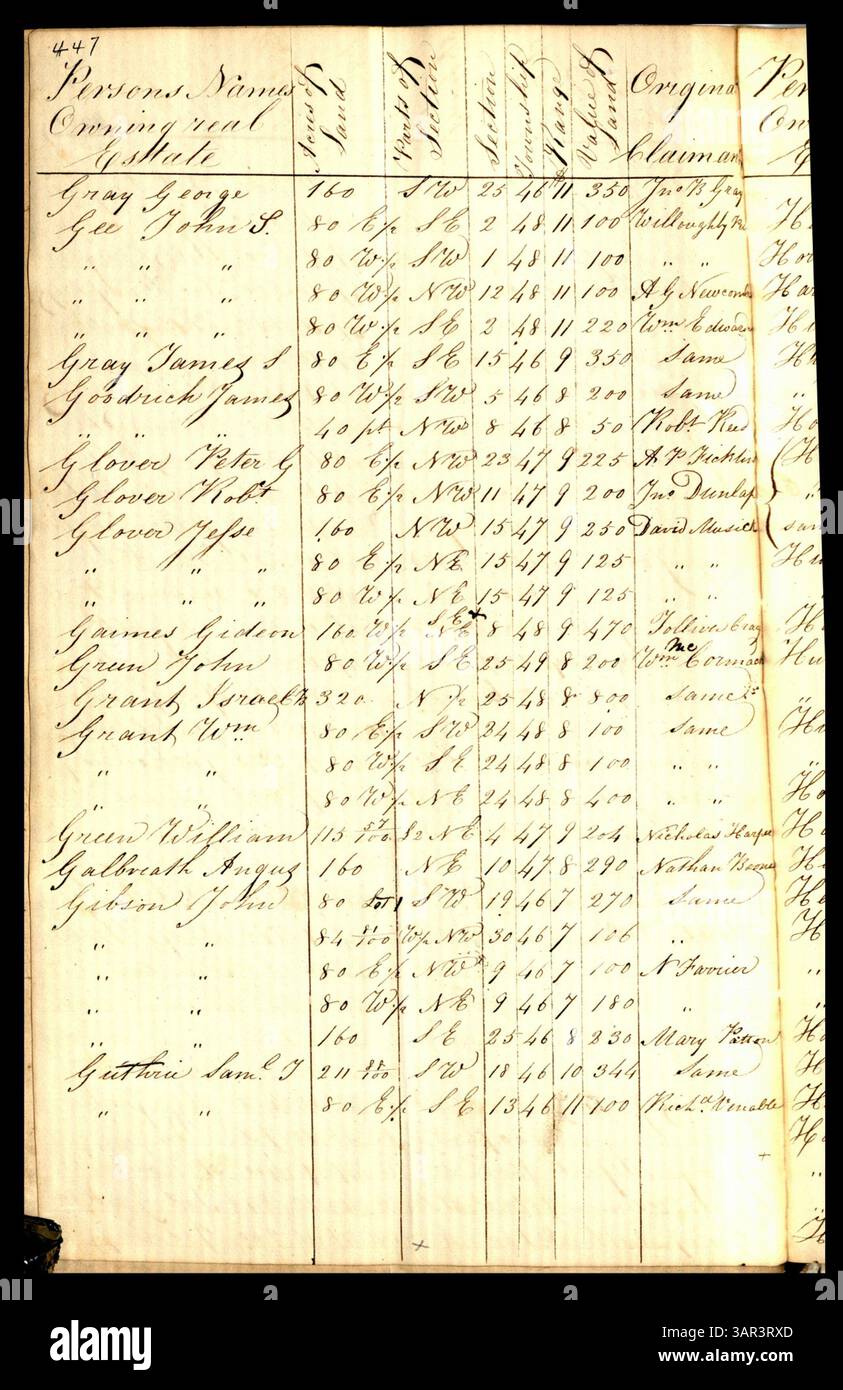 447
Persons Names Owning real Estate Acres of Land Parts of Section Section Township Range Value of Land Origina Claiman
Gray George 160 SW 25 46 11 350 Jno B Gray
Gee John S. 80 E½ SE 2 48 11 100 Willoughby
" " " 80 W½ SW 1 48 11 100 " "
" " " 80 W½ NW 12 48 11 100 A G Newcomb
" " " 80 W½ SE 2 48 11 220 Wm Edwards
Gray James S 80 E½ SE 15 46 9 350 Same
Goodrich James 80 W½ SW 5 46 8 200 Same
" " " 40 pt NW 8 46 8 50 Robt Reed
Glover Peter G 80 E½ NW 23 47 9 225 A P Ficklin
Glover Robt 80 E½ NW 11 47 9 200 Jno Dunlap
Glover Jesse 160 NW 15 47 9 250 David Musick
" " " 80 E½ NE 15 47 9 125 " "
" " " 80 W½ NE 15 47 9 125 " "
Gaimes Gideon 160 W½ SE NE 8 48 9 470 Tolliver Craig
Green John 80 W½ SE 25 49 8 200 Wm McCormack
Grant Israel 320 N ½ 25 48 8 800 Same
Grant Wm 80 E½ SW 24 48 8 100 Same
" " 80 W½ SE 24 48 8 100 " "
" " 80 W½ NE 24 48 8 400 " "
Green William 113 57/100 NE 4 47 9 204 Nicholas Harper
Galbreath Angus 160 NE 10 47 8 290 Nathan Boone
Gibson John 80 Lot 1 SW 19 46 7 270 Same
" " 84 81/100 W½ NW 30 46 7 106 "
" " 80 E½ NW 9 46 7 100 N Farrier
" " 80 W½ NE 9 46 7 180 "
" " 160 SE 25 46 8 230 Mary Patton
Guthrie Saml T 211 88/100 SW 18 46 10 344 Same
" " 80 E½ SE 13 46 11 100 Richd Venable
alamy
Image ID: 2AR3RXD
www.alamy.com